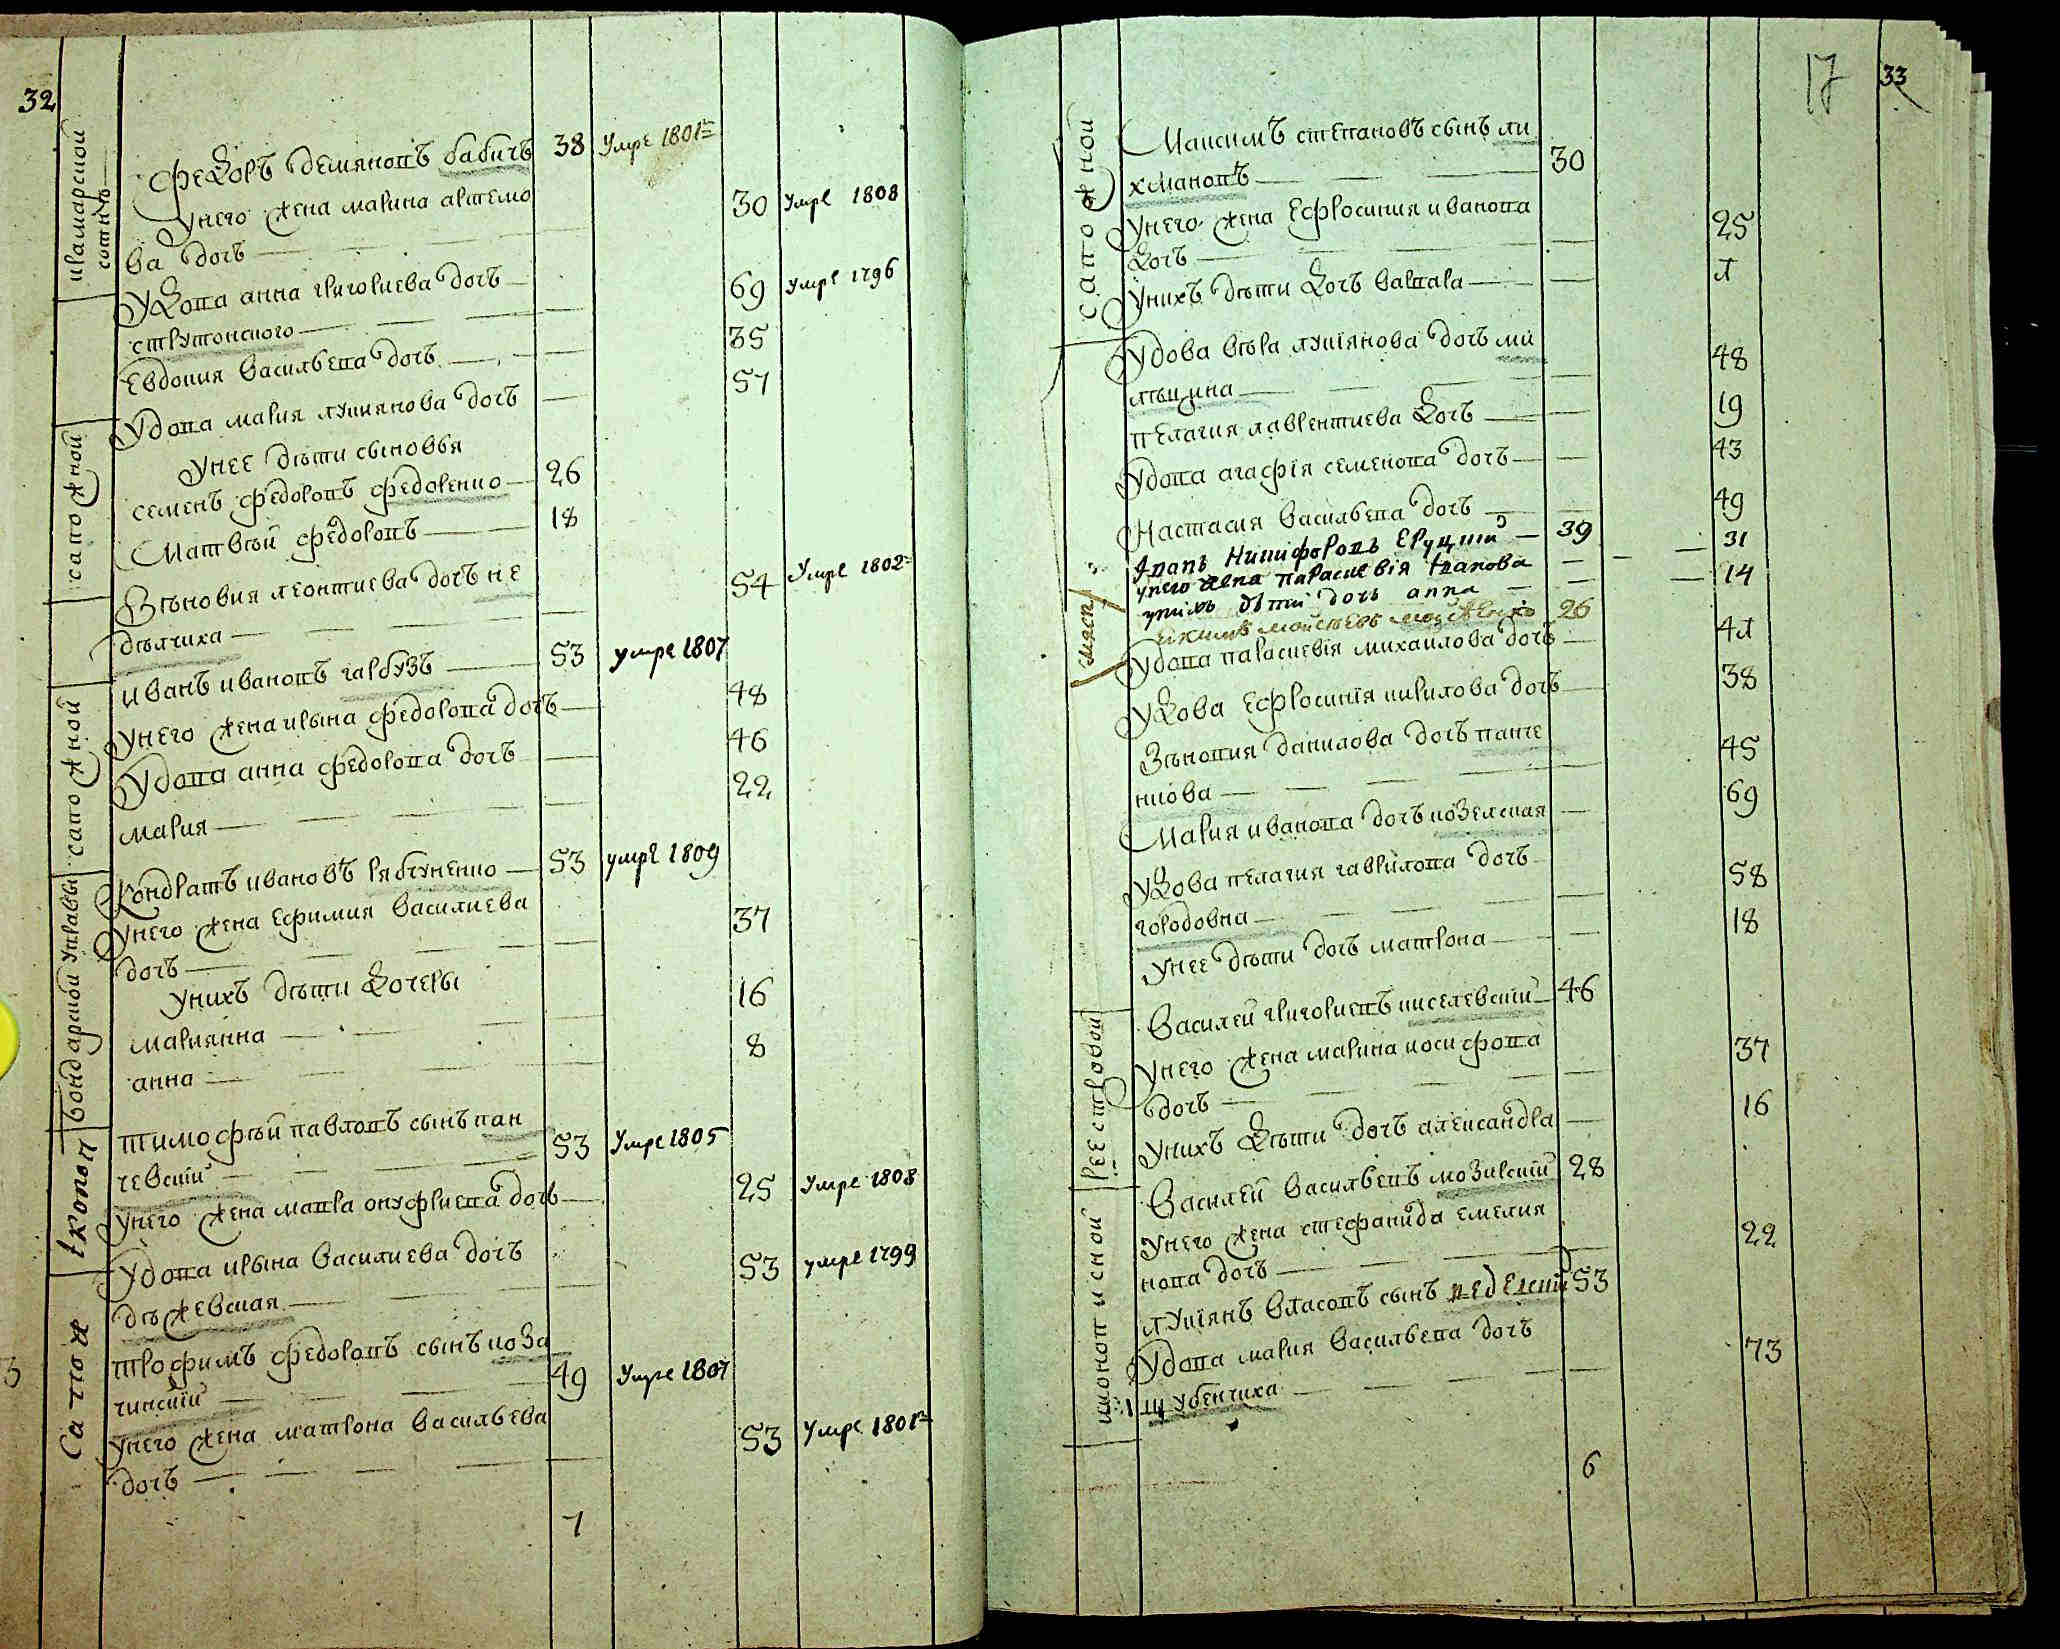 32
крамарской
сотнѣ
Федоръ демяновъ бабичъ 38 умре 1801г
Унего жена марина артемо
ва дочъ 30 умре 1808
Удова анна григориева дочъ
струтонского 69 умре 1796
Евдокия василъева дочъ 35
Удова мария лукиянова дочъ 57
сапожной
Унее дѣти сыновья
семенъ федоровъ федоренко 26
Матвѣй федоровъ 18
Зѣновия леонтиева дочъ не
дѣлчиха 54 умре 1802г
сапожной
иванъ ивановъ гарбузъ 53 умре 1807
унего жена ирына федорова дочъ 48
Удова анна федорова дочъ 46
мария 22
бондарской управы
Кондратъ ивановъ рябчуненко 53 умре 1809
Унего жена ефимия василиева
дочъ 37
Унихъ дѣти дочеры
марианна 16
анна 8
Іконоп
тимофѣй павловъ сынъ пан
чевский 53 умре 1805
унего жена мавра онуфриева дочъ 25 умре 1808
Удова ирына василиева дочъ
дѣжевская 53 умре 1799
Сапож
трофимъ федоровъ сынъ коза
чинский 49 умре 1807
унего жена матрона василъева
дочъ 53 умре 1801г
7
17 33
сапожной
Максимъ степановъ сынъ ли
хмановъ 30
Унего жена Ефросиния иванова
дочъ 25
Унихъ дѣти дочъ варвара л
Удова вѣра лукіянова дочъ ми
лѣцина 48
пелагия лаврентиева дочъ 19
Удова агафія семенова дочъ 43
Настасия василъева дочъ 49
мяспи
Іванъ Никифоровъ Еруцкий 39
унего жена параскевія Іванова 31
унихъ дѣти дочъ анна 14
26
Удова параскевія михаилова дочъ 4л
Удова ефросинія кирилова дочъ 38
Зѣновия данилова дочъ панче
нкова 45
Мария иванова дочъ козелская 69
Удова пелагия гаврилова дочъ
городовна 58
Унее дѣти дочъ матрона 18
реестровой
Василей григориевъ киселевский 46
Унего жена марина иосифова
дочъ 37
Унихъ дѣти дочъ александра 16
иконописной
Василей василъевъ мозирский 28
Унего жена стефанида емелия
нова дочъ 22
лукіянъ власовъ сынъ педеский 53
Удова мария василъева дочъ
шубенчиха 73
6